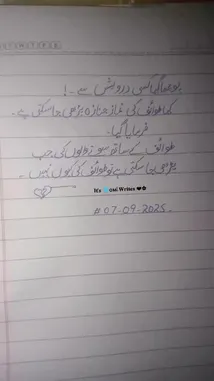 پوچھا گیا کسی درویش سے - !
کیا طوائف کی نماز جنازہ پڑھی جا سکتی ہے -
فرمایا گیا -
طوائف کے ساتھ سونے والوں کی جب
پڑھی جا سکتی ہے تو طوائف کی کیوں نہیں -
It's Writes
# 07-09-2025.